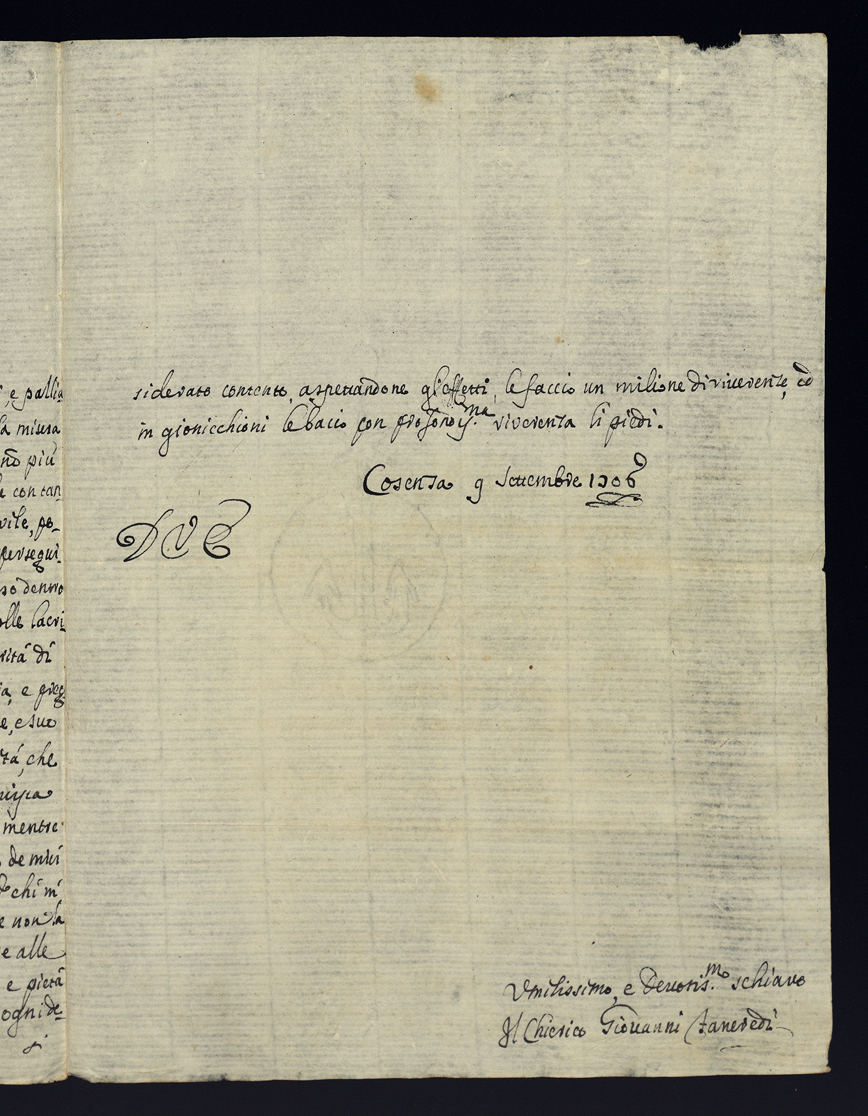 , e palli
la miura
no più
e contan
vile, pe-
persegui-
so dentro
olle lacri
rità di
ia, e preg
e, e sue
tà, che
nisca
mentre
de miei
chi m'
e non la
e alle
e pietà
ogni de-
si
siderato contento, aspettandone gl'effetti, le faccio un milione di riverenze, ed
in gionicchioni le bacio con profondis.ma riverenza li piedi.
Cosenza 9 Settembre 1706
D V E
Vmilissimo, e Deuotis.mo schiauo
Il Chierico Giouanni Tancredi